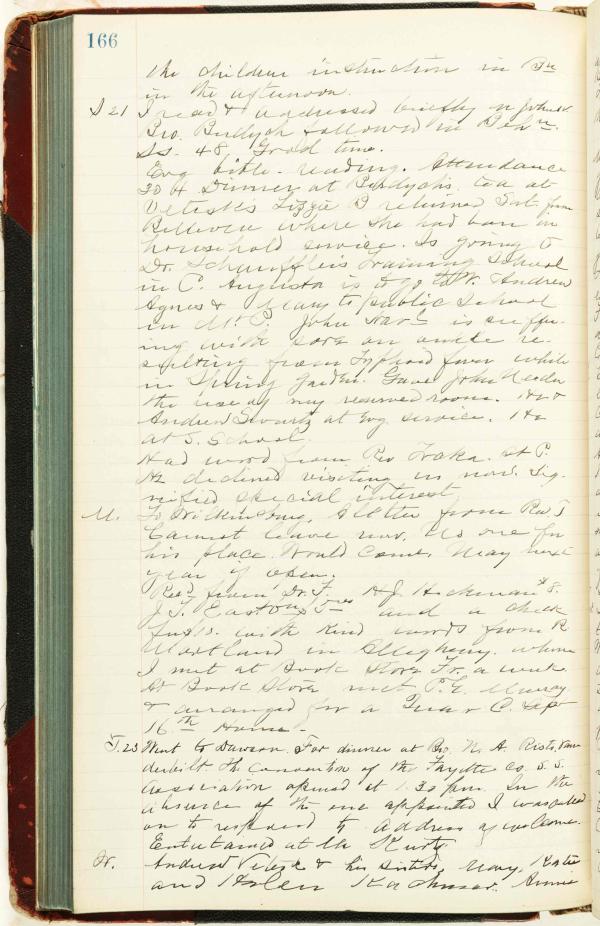 166
the children instruction in
in the afternoon.
S 21 I read & addressed briefly
Bro. Birdych followed in
S.S. 48. Good time.
Evg bible-reading. Attendance
30. H. Dinner at Birdychs, tea at
Lizzie B returned Sat. from
Bellevue where she had been in
household service. Is going to
Dr. Schauffler's Training School
in C. Augusta is to go Andrew
Agnes & Mary to public School
in Mt. P. John is suffer-
ing with sore on ankle re-
sulting from Typhoid fever while
in Spring Garden. Gave John
the use of my reserved room. He &
Andrew Swartz at Evg service. He
at S. School.
Had word from Rev at P.
He declined visiting us now. Sig-
nified special interest
M. To Wilkinsburg. A letter from Rev. T
Cannot leave now. No one for
his place. Would come, May next
year if open.
Recd from Dr. F. H.J. Hickman $8.
J. T. Easton and a check
for with kind words from R
in Allegheny. whom
I met at Book Store Fr. a week.
At Book Store met P. E. Murray
& arranged for a C. Sept
16th Home.
T. 23 Went to Dawson. For dinner at Bro. M. A. Rists, Van-
derbilt. The convention of the Fayette Co. S.S.
association opened at 1.30 p.m. In the
absence of the one appointed I was called
on to respond to address of welcome.
Entertained at
W. Andrew & his sisters, Mary, Katie
and Helen Kachmar. Annie